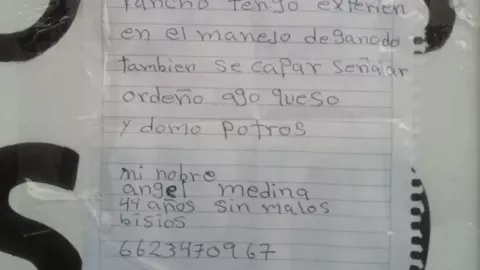 rancho tengo exterien
en el manejo de ganado
tambien se capar señalar
ordeño ago queso
y domo potros
mi nobre
angel medina
44 años sin malos
bisios
6623470967